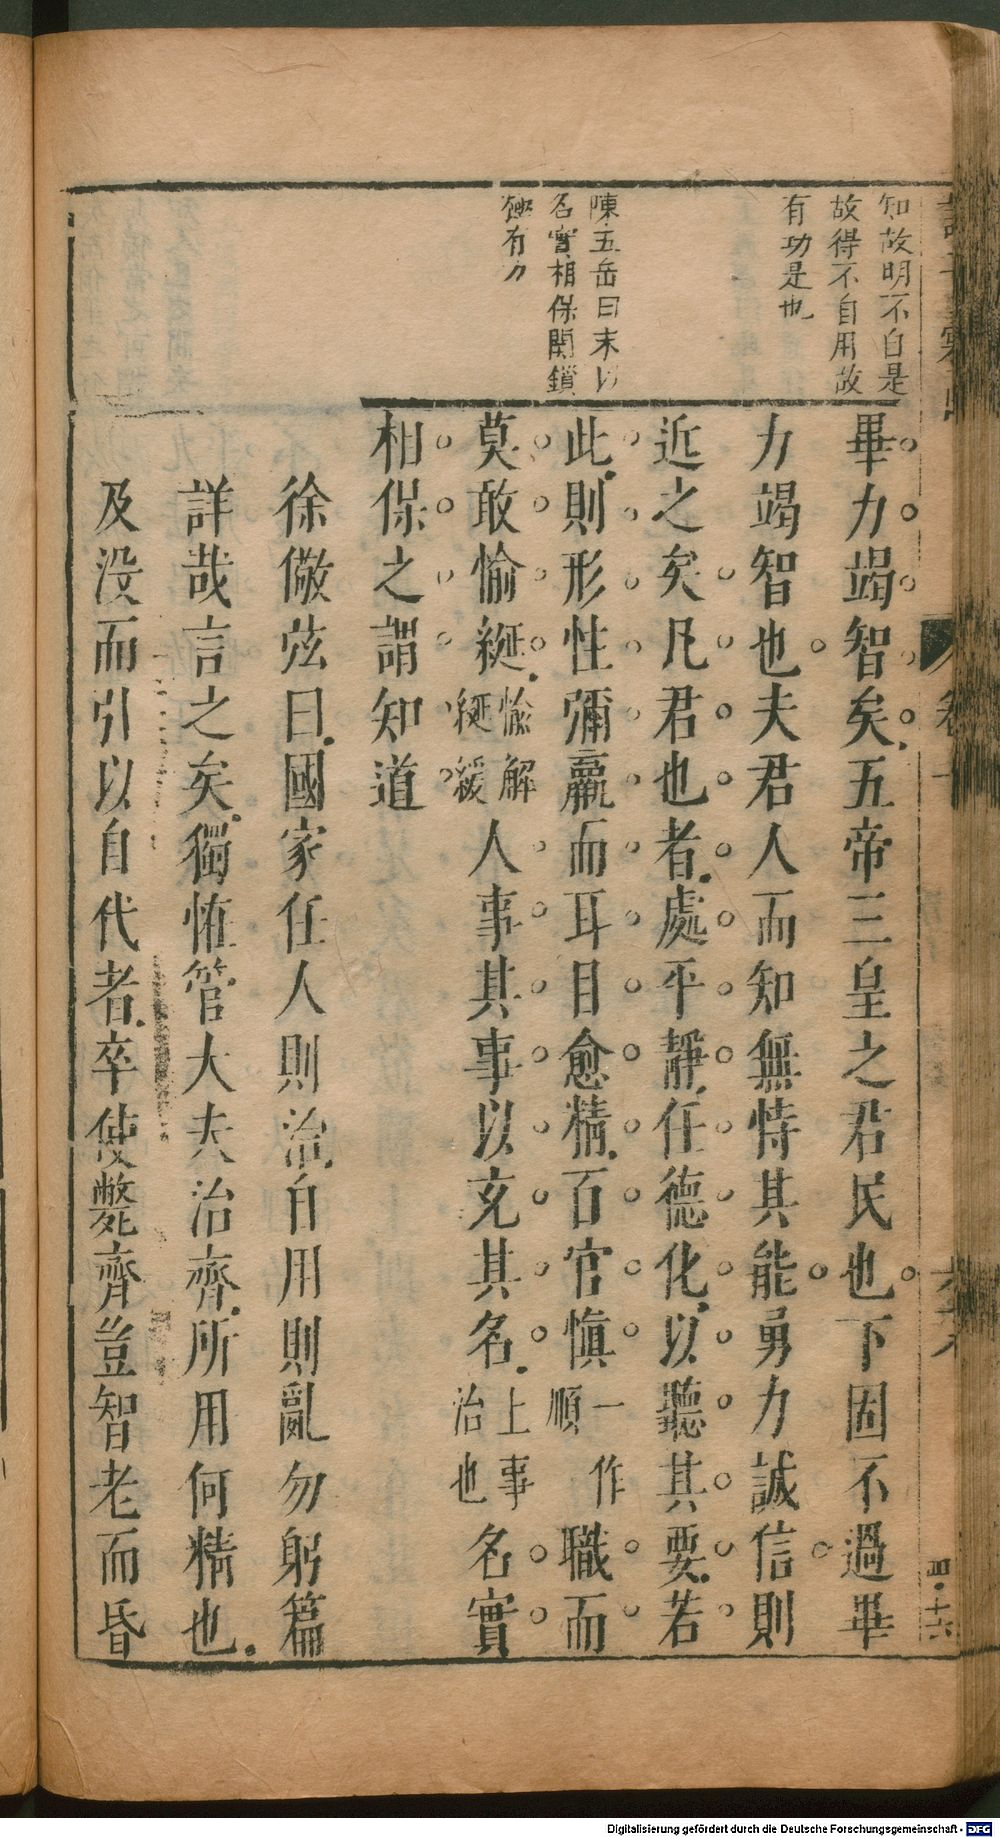 知故明不自是
故得不自用故
有功是也
陳五岳曰末以
名實相保関鎖
有力
畢力竭智矣五帝三皇之君民也下固不過畢
力竭智也夫君人而知無恃其能勇力誠信則
近之矣凡君也者處平靜任德化以聽其要若
此則形性彌羸而耳目愈精百官慎一作順職而
莫敢愉綖愉解綖緩人事其事以充其名上事治也名實
相保之謂知道
徐儆弦曰國家任人則治自用則亂勿躬篇
詳哉言之矣獨恠管大夫治齊所用何精也
及没而引以自代者卒使斃齊豈智老而昏
卷十
四·十六
Digitalisierung gefördert durch die Deutsche Forschungsgemeinschaft - DFG